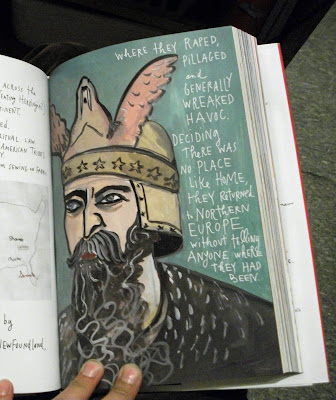 ACROSS the
TINENT.
ed.
RITUAL LAW
AMERICAN TRIBES
Y.
by
NEWFOUNDLAND.
WHERE THEY RAPED,
PILLAGED
and
GENERALLY
WREAKED
HAVOC.
DECIDING
THERE WAS
NO PLACE
LIKE HOME,
THEY RETURNED
to NORTHERN
EUROPE
without telling
ANYONE WHERE
THEY HAD
BEEN.